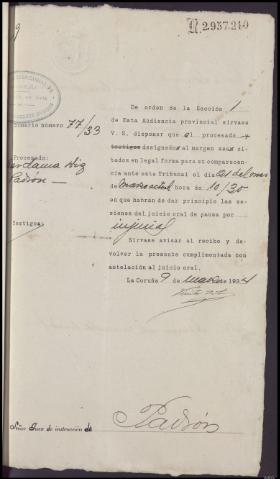 N.2.957.240
De orden de la Sección 1
de Esta Audiencia provincial sírvase
V. S. disponer que el procesado y
testigos designados al margen sean ci
tados en legal forma para su comparecen
cia ante este Tribunal el dia
hora de 10/30
en que habrán de dar principio las se
siones del juicio oral de causa por
injurias
Sírvase avisar el recibo y de
volver la presente cumplimentada con
antelación al juicio oral.
La Coruña 9 de Marzo de 1934
Sumario número 77/33
Procesado:
Padrón
Testigos:
Señor Juez de instrucción de Padrón